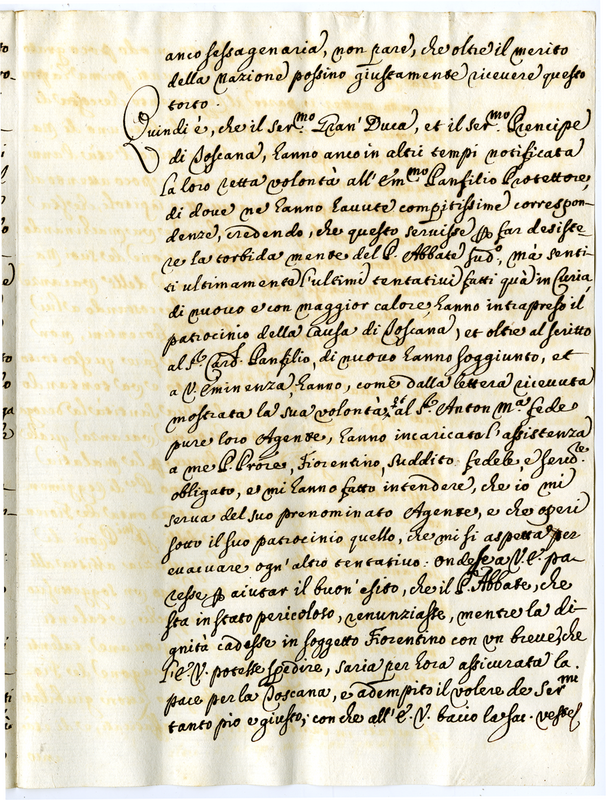 anco sessagenaria, non pare, che oltre il merito
della Nazione possino giustamente ricevere questo
torto.
Quindi è, che il Ser.mo Gran' Duca, et il Ser.mo Prencipe
di Toscana, hanno anco in altri tempi notificata
la loro retta volontà all'Em.mo Panfilio Protettore,
di dove ne hanno havute compitissime correspon-
denze, credendo, che questo servisse p far desiste
re la torbida mente del P. Abbate sud.o, mà senti-
ti ultimamente l'ultimi tentativi fatti quà in Curia,
di nuovo e con maggior calore, hanno intrapreso il
patrocinio della Causa di Toscana, et oltre al scritto
al S.r Card. Panfilio, di nuovo hanno soggiunto, et
a V. Eminenza, hanno, come dalla lettera ricevuta
mostrata la sua volontà, et al S.r Anton M.a Fede
pure loro Agente, hanno incaricato l'assistenza
a me P. Prore, Fiorentino, suddito fedele, e
obligato, e mi hanno fatto intendere, che io mi
serva del suo prenominato Agente, e che operi
sotto il suo patrocinio quello, che mi si aspetta per
evacuare ogn'altro tentativo: onde se a V. E. pa-
resse p aiutar il buon'esito, che il P. Abbate, che
sta in stato pericoloso, renunziasse, mentre la di-
gnità cadesse in soggetto Fiorentino con un breve, che
l'E. V. potesse spedire, saria per hora assicurata la
pace per la Toscana, e adempito il volere de Ser.mi
tanto pio e giusto; con che all'E. V. bacio la sac. veste